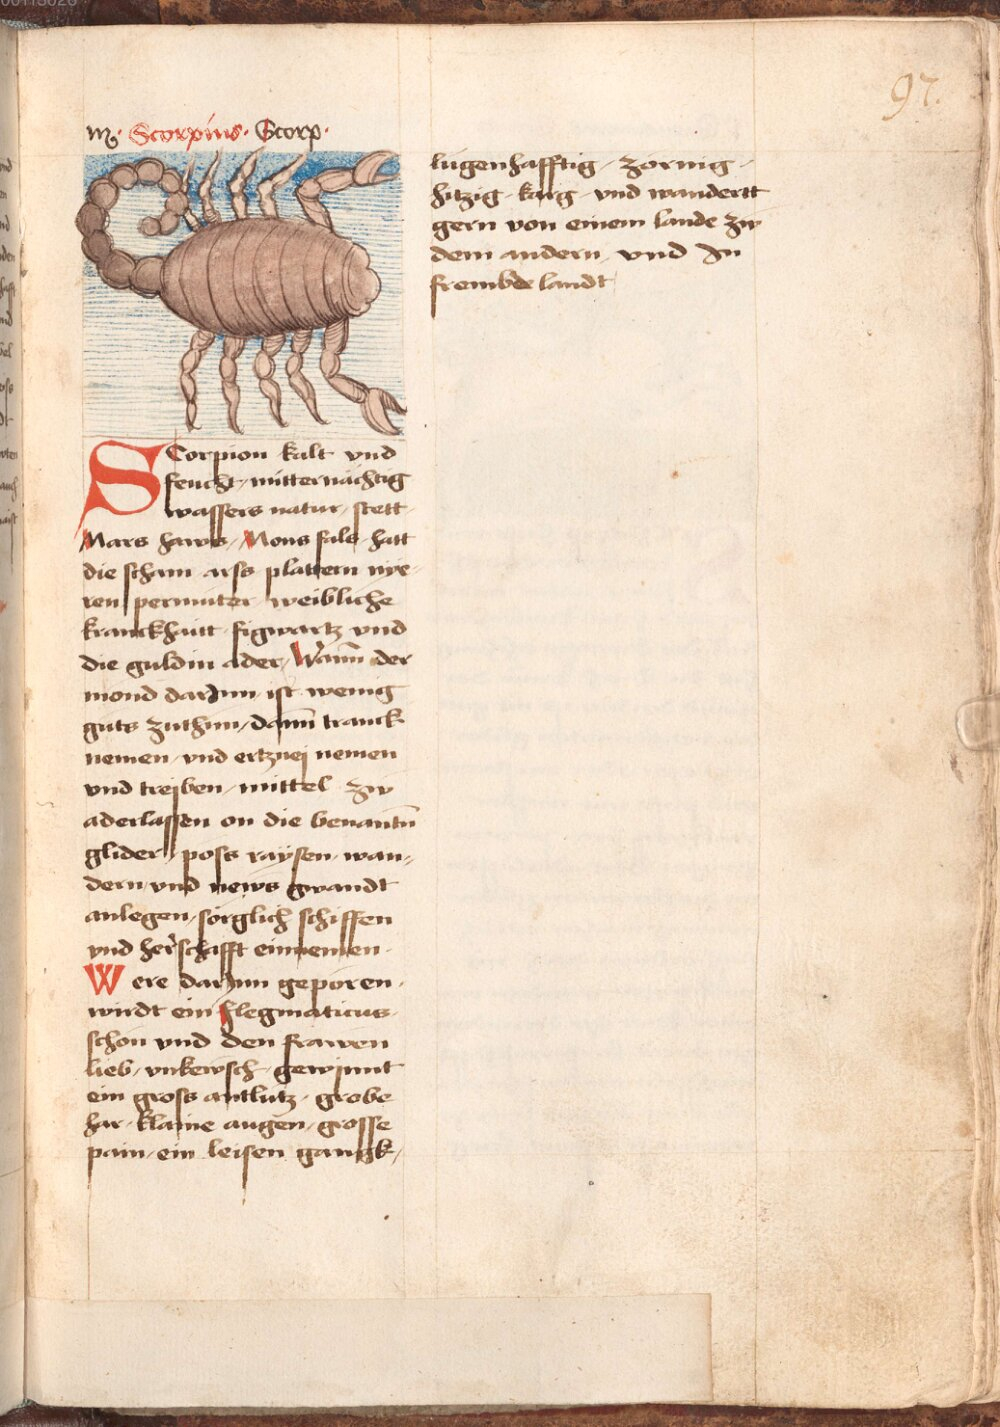 97.
♏. Scorpius. Scorp.
SCorpion kalt vnd
feucht, mitternächtig
wassers natur, stett
Mars haws, Mons fals, hatt
die scham arss plattern nye-
ren permuter, weibliche
kranckhaitt figwartz vnd
die guldin ader, Wann der
mond darInn ist wenig
guts zuthun, dann tranck
nemen, vnd ertznej nemen
vnd trejben, mittel zw
aderlassen on die benantn
glider, poss raÿsen, wan-
dern, vnd news gwandt
anlegen, sörglich schiffen
vnd herschafft einnemen.
Were darynn geporen,
wirdt ein flegmaticus,
schön vnd den frawen
lieb, vnkewsch, gewinnt
ein gross antlütz, grobe
har, klaine augen, grosse
pain, ein leisen gangk,
lügenhafftig, zornig,
hitzig, karg, vnd wandertt
gern von einem lande zw
dem andern, vnd In
frembde landt